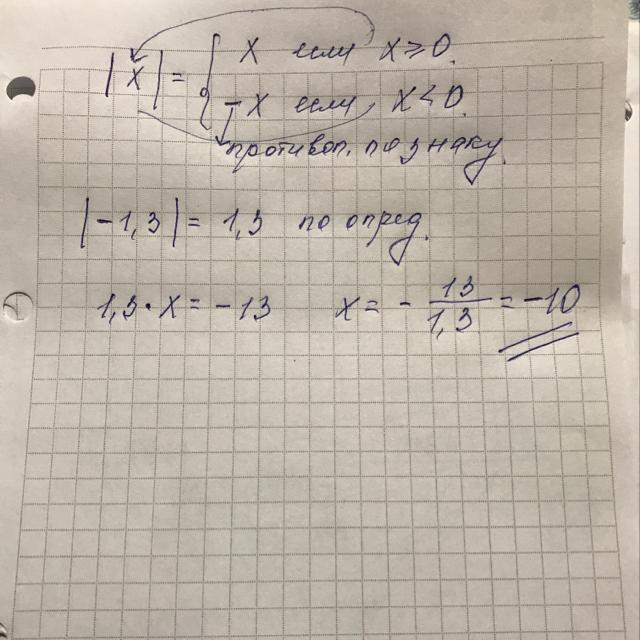 |x| = { x если x ≥ 0.
-x если, x < 0.
противоп. по знаку.
|-1,3| = 1,3 по опред.
1,3 · x = -13 x = - 13/1,3 = -10